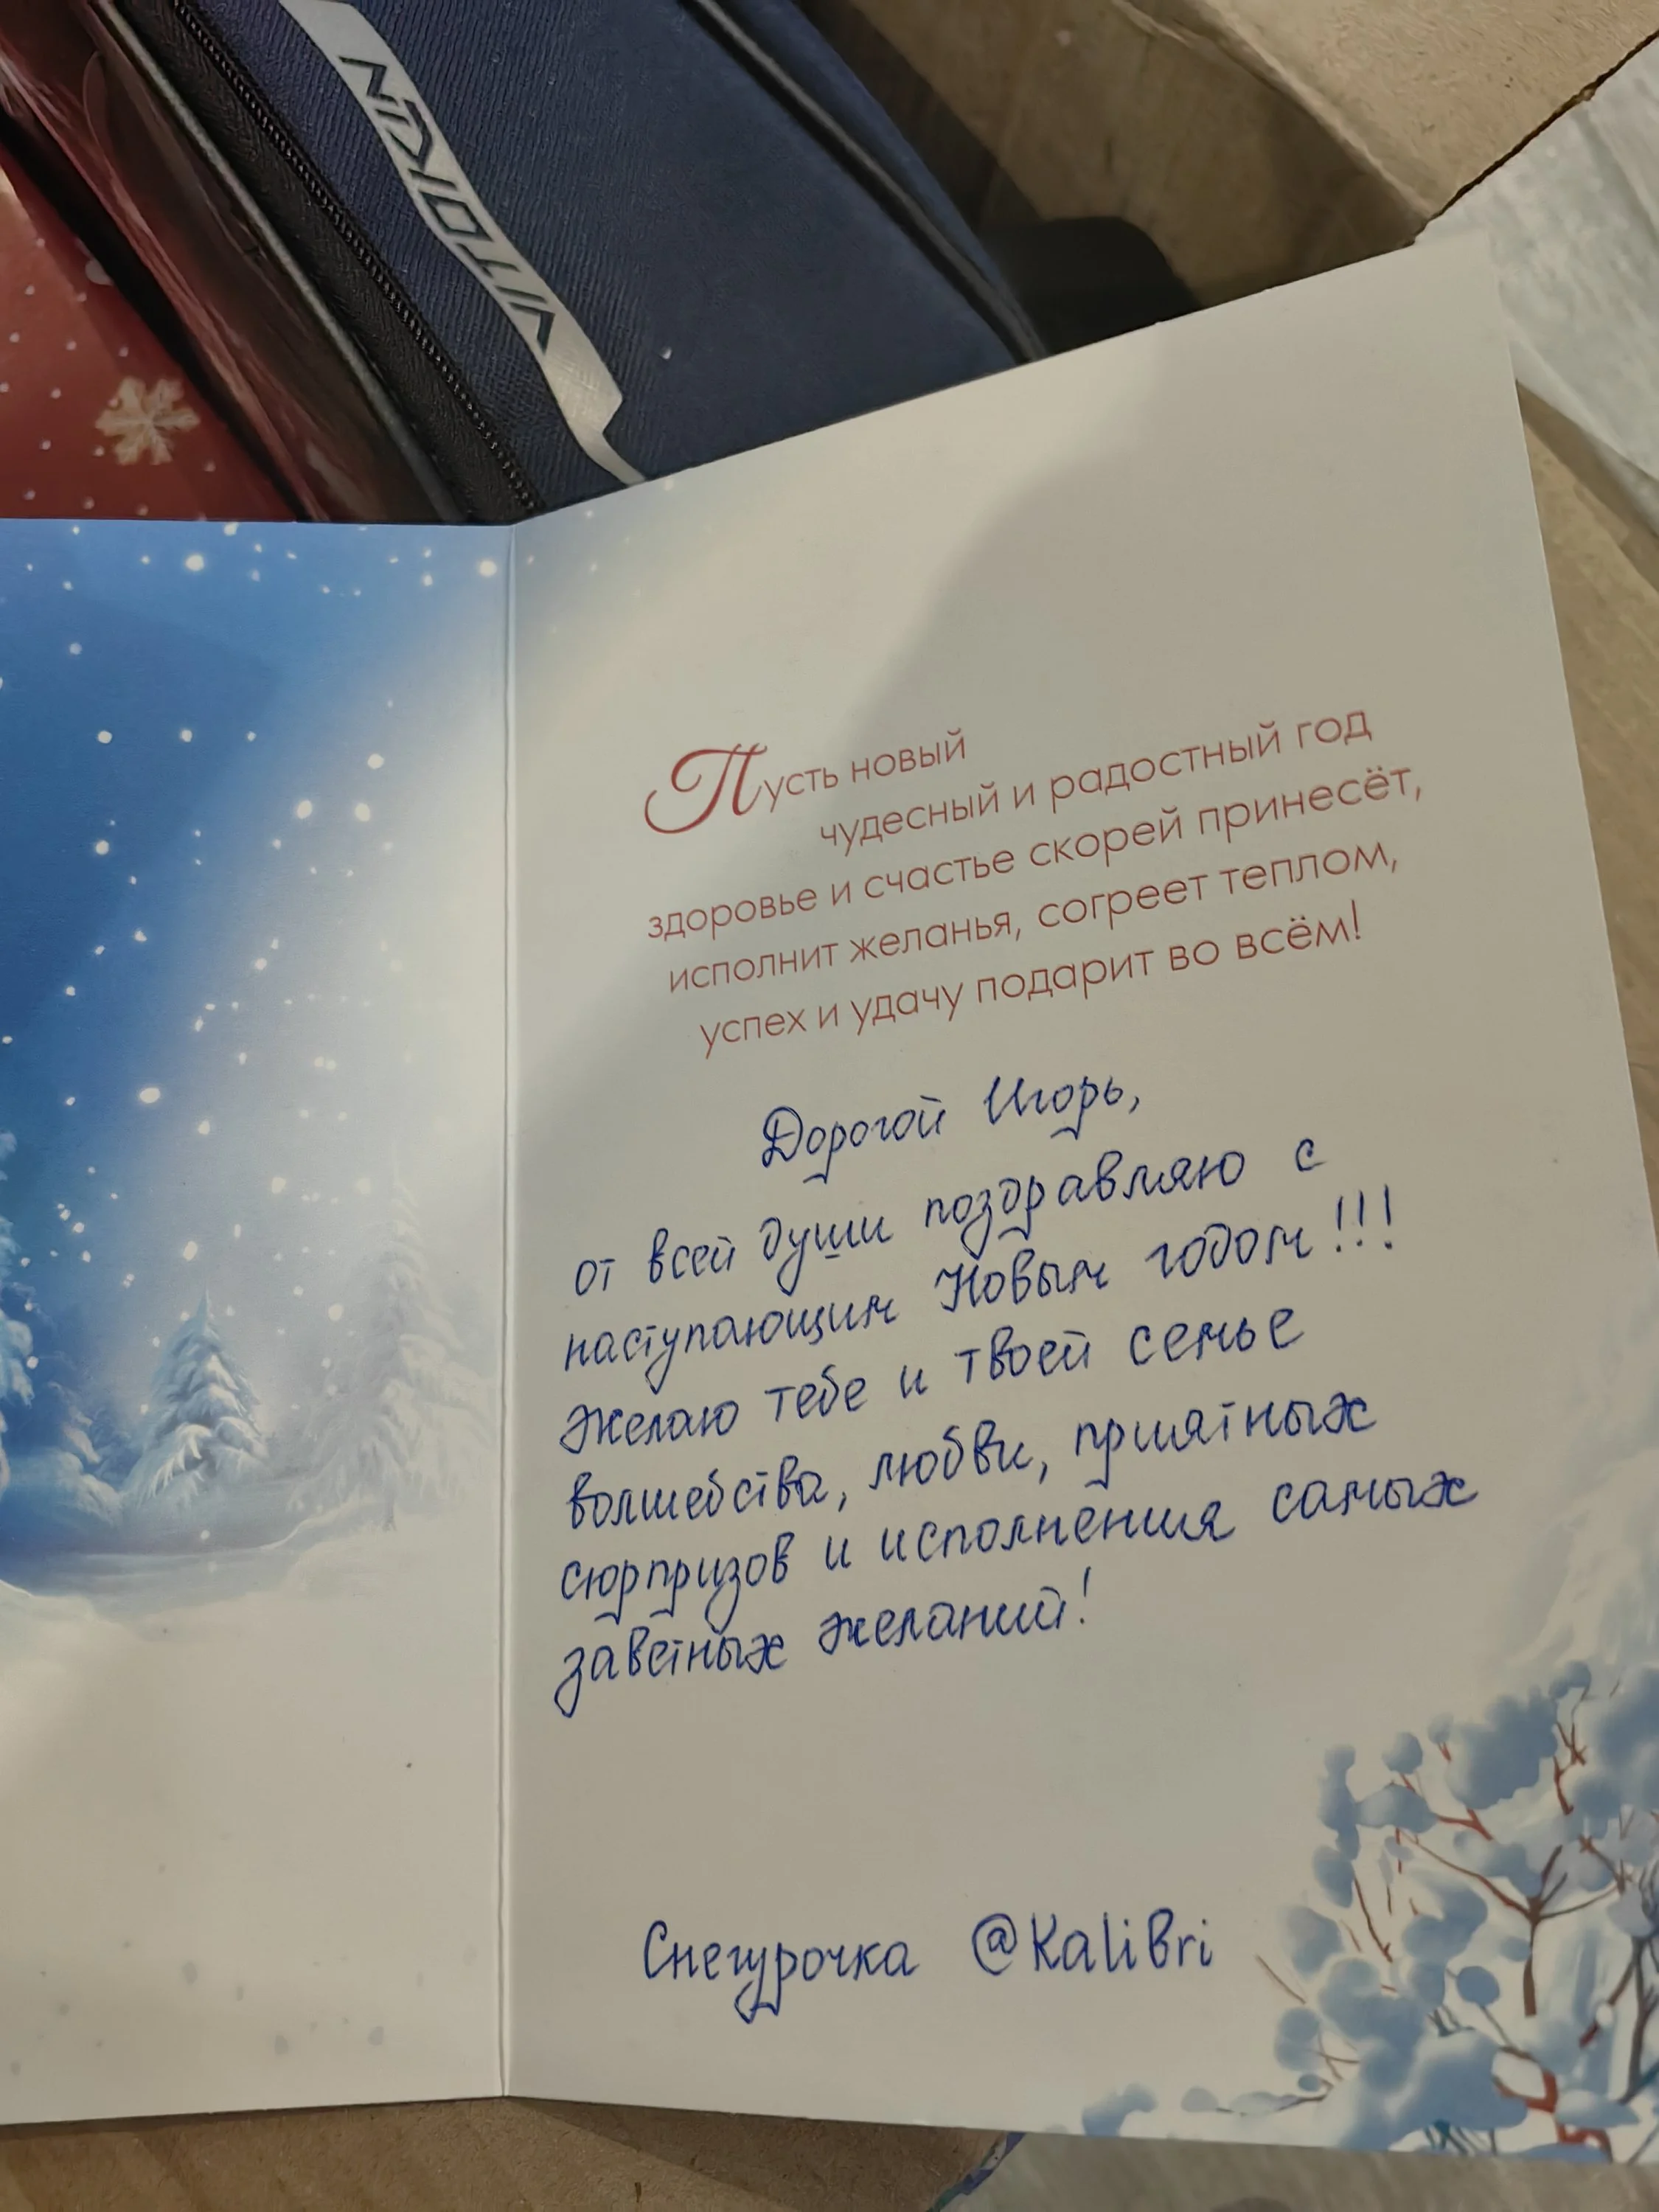 VITOKIN
Пусть новый
чудесный и радостный год
здоровье и счастье скорей принесёт,
исполнит желанья, согреет теплом,
успех и удачу подарит во всём!
Дорогой Игорь,
от всей души поздравляю с
наступающим Новым годом!!!
Желаю тебе и твоей семье
волшебства, любви, приятных
сюрпризов и исполнения самых
заветных желаний!
Снегурочка @KaliBri